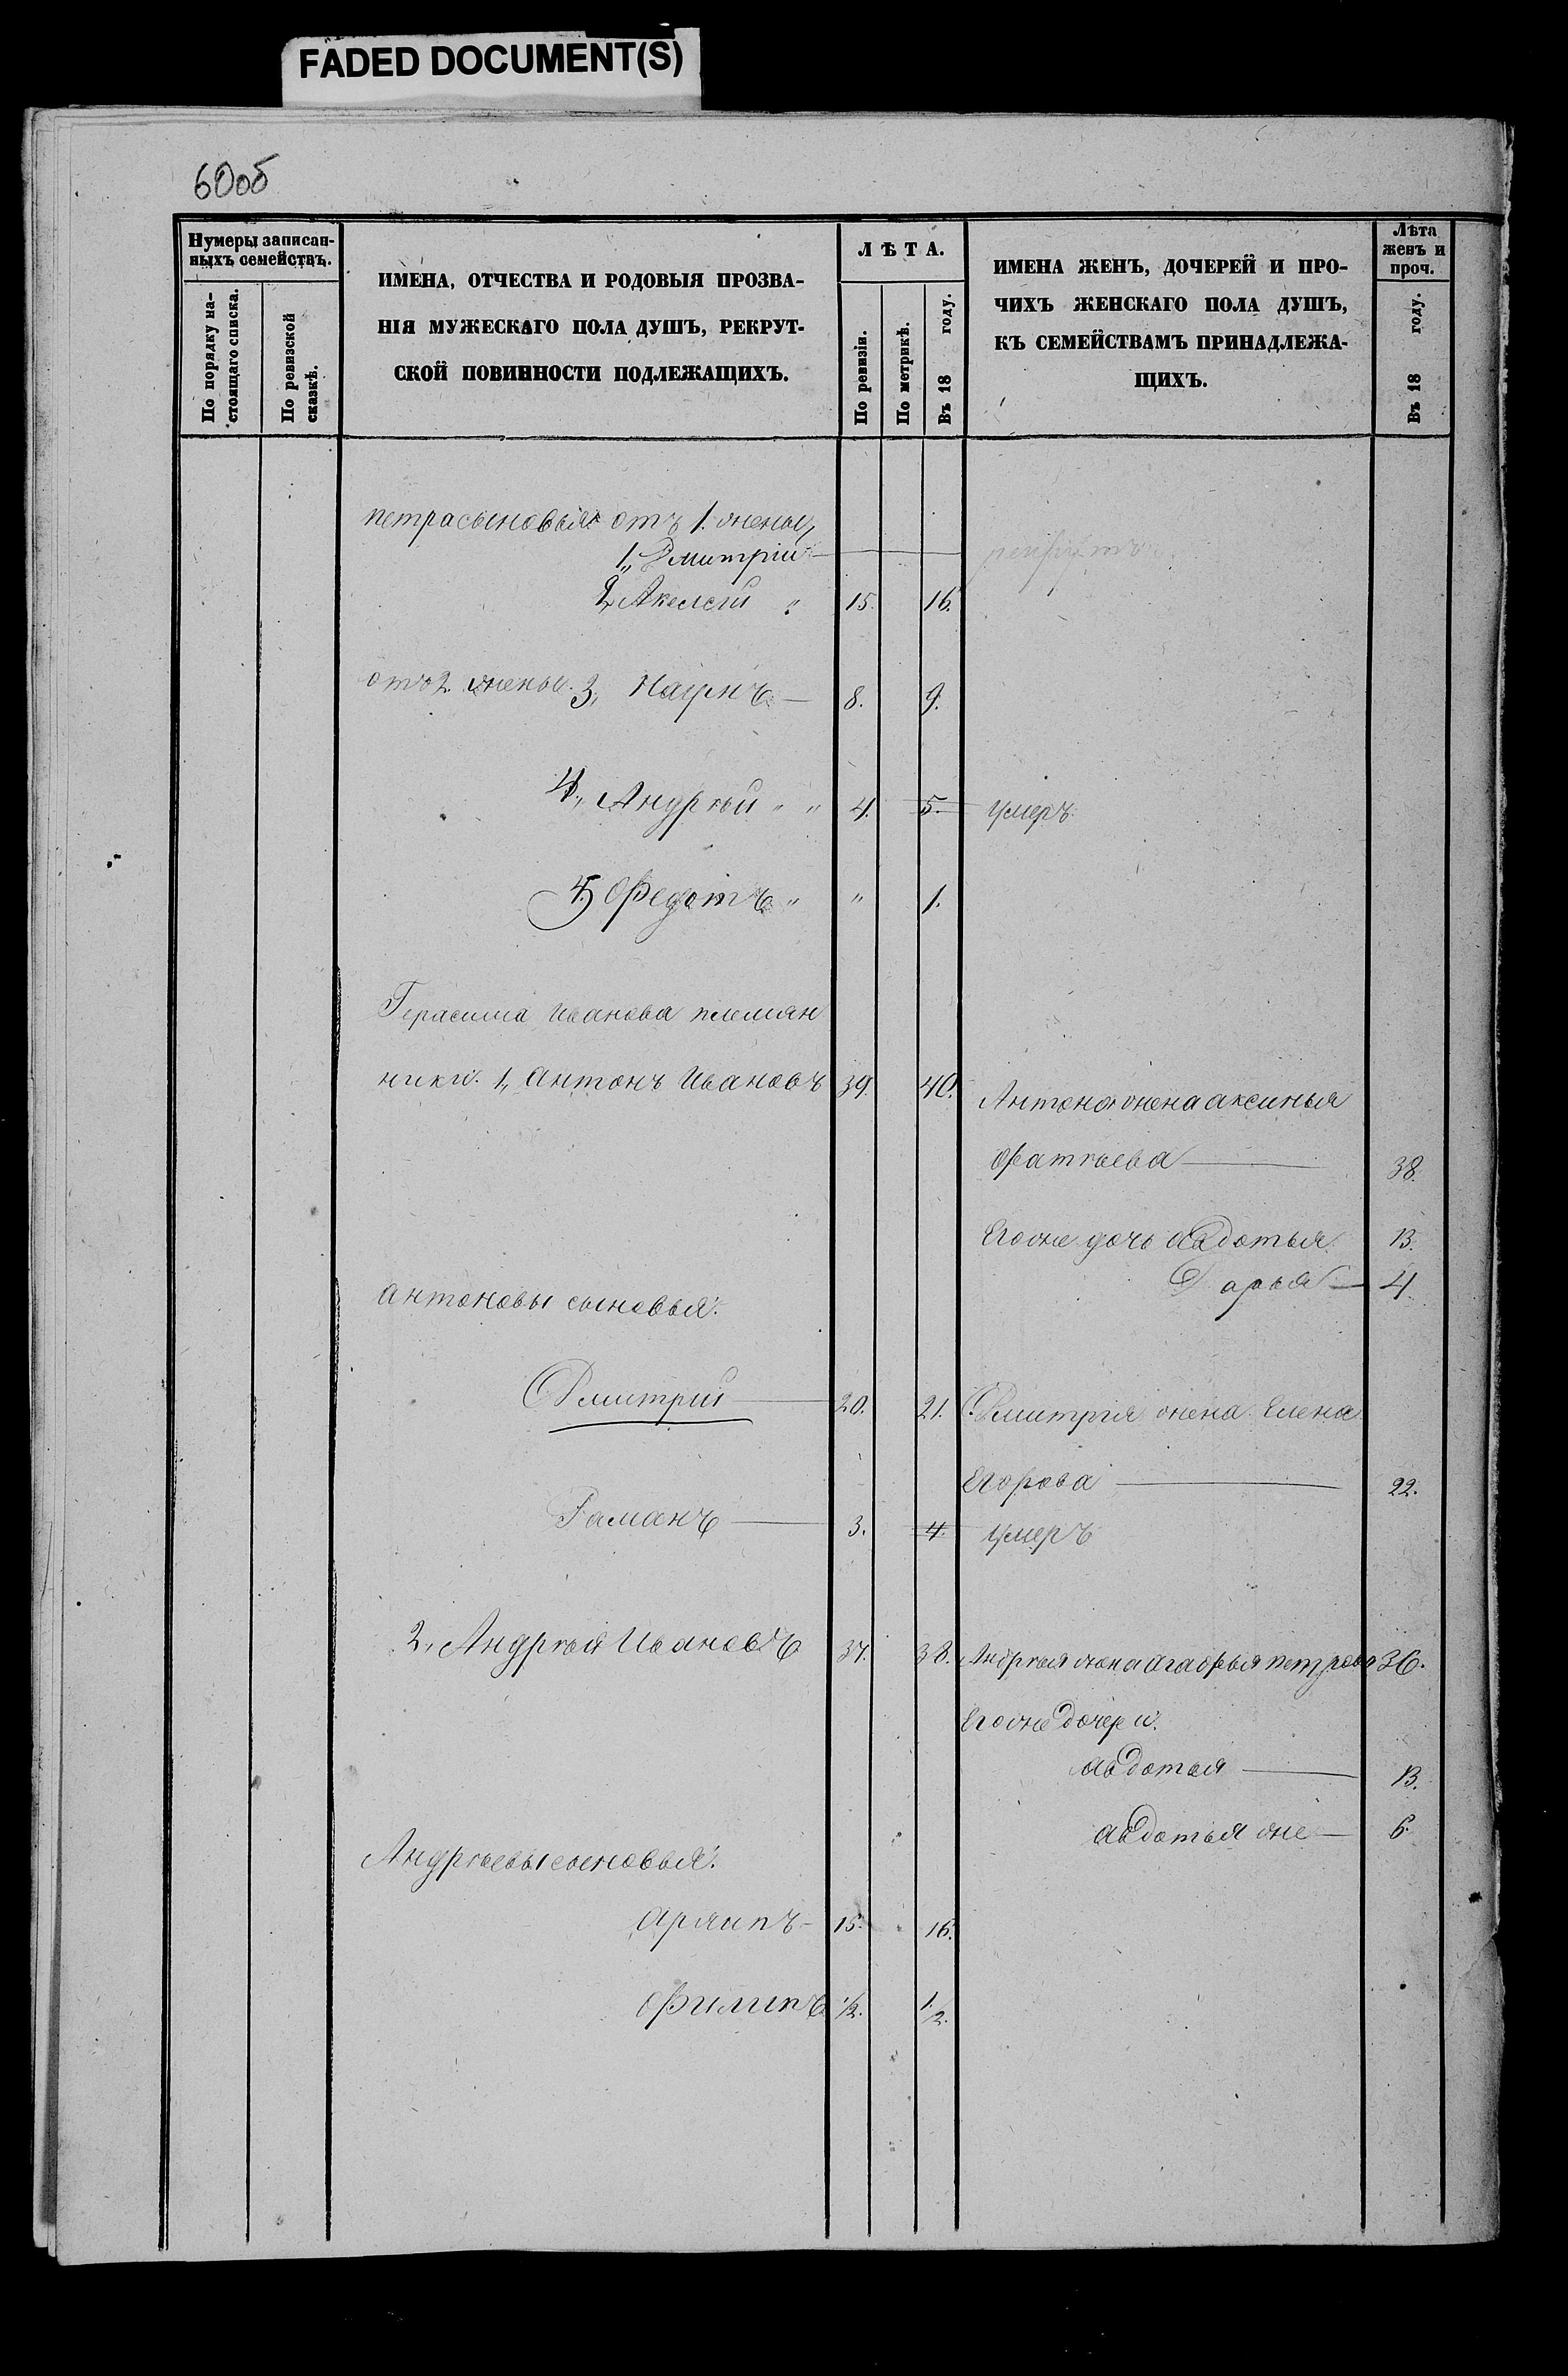 FADED DOCUMENT(S)
60об
Нумеры записан-
ныхъ семействъ.
По порядку на-
стоящаго списка.
По ревизской
сказкѣ.
ИМЕНА, ОТЧЕСТВА И РОДОВЫЯ ПРОЗВА-
НІЯ МУЖЕСКАГО ПОЛА ДУШЪ, РЕКРУТ-
СКОЙ ПОВИННОСТИ ПОДЛЕЖАЩИХЪ.
ЛѢТА.
По ревизіи.
По метрикѣ.
Въ 18 году.
ИМЕНА ЖЕНЪ, ДОЧЕРЕЙ И ПРО-
ЧИХЪ ЖЕНСКАГО ПОЛА ДУШЪ,
КЪ СЕМЕЙСТВАМЪ ПРИНАДЛЕЖА-
ЩИХЪ.
Лѣта
женъ и
проч.
Въ 18 году.
петра сыновья отъ 1. жены,
1,, Дмитрій
2, Акелсій 15. 16.
отъ 2. жены. 3,, Наумъ 8. 9.
4,, Андрѣй " " 4. 5. умеръ
5 Федотъ " " 1.
Герасима Иванова племян
ники. 1,, Антонъ Ивановъ 39. 40. Антона жена аксинья
Фатѣева 38.
Егоже дочь авдотья. 13.
Дарья 4
антоновы сыновья.
Дмитрій 20. 21. Дмитрія жена Елена
Егорова 22.
Раманъ 3. 4. умеръ
2,, Андрѣй Ивановъ 37. 38. Андрѣя жена агафья петрова 36.
Егоже дочери.
авдотья 13.
авдотья же 6.
Андрѣевы сыновья.
архипъ 15. 16.
Филипъ 1/2. 1/2.